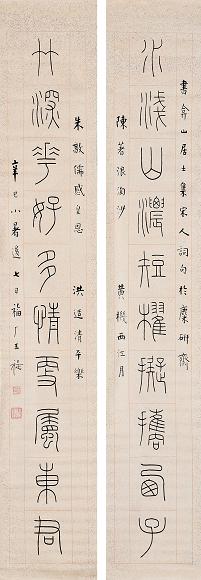 書弇山居士集宋人詞句於麋研齋
水淺山濃短櫂擬攜西子
陳著浪淘沙 黃機西江月
朱敦儒感皇恩 洪适清平樂
竹深華好多情更屬東君
辛巳小暑後七日福厂王褆